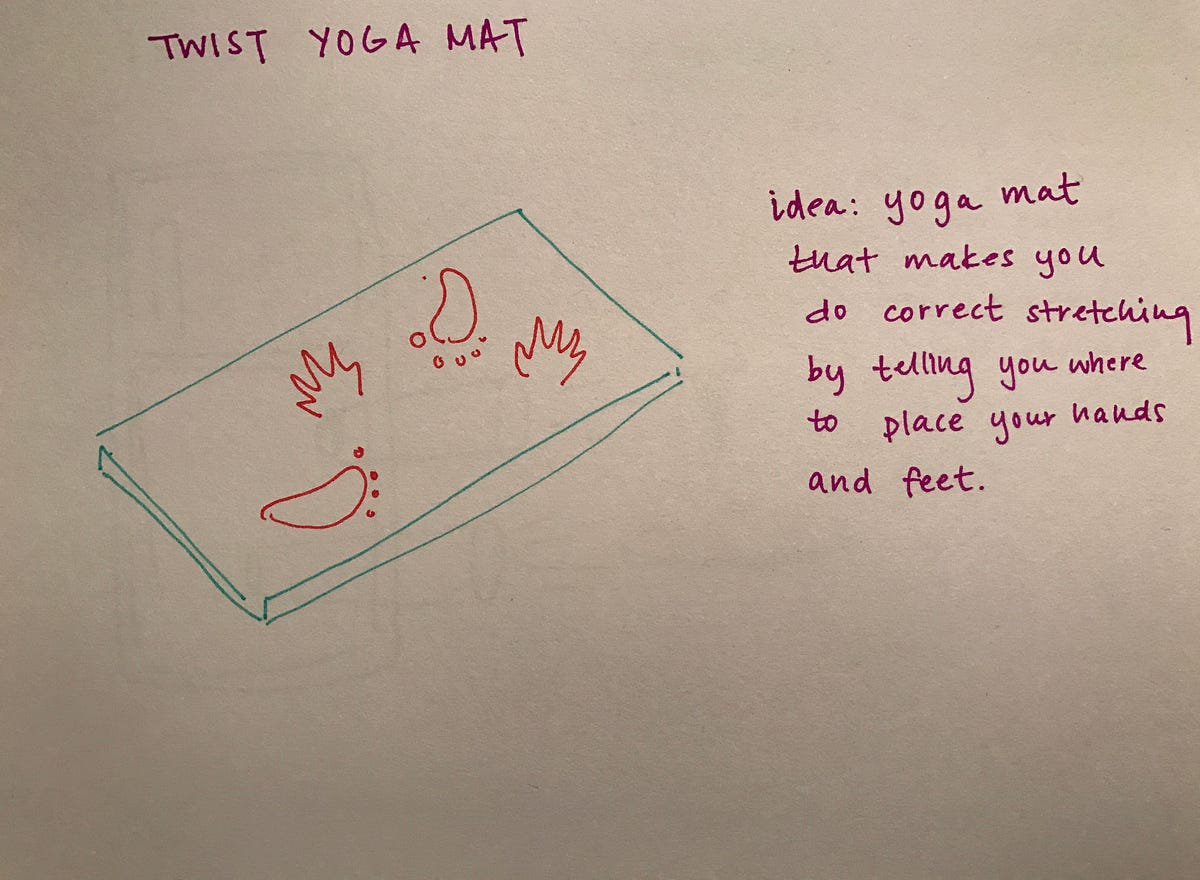 TWIST YOGA MAT
idea: yoga mat
that makes you
do correct stretching
by telling you where
to place your hands
and feet.